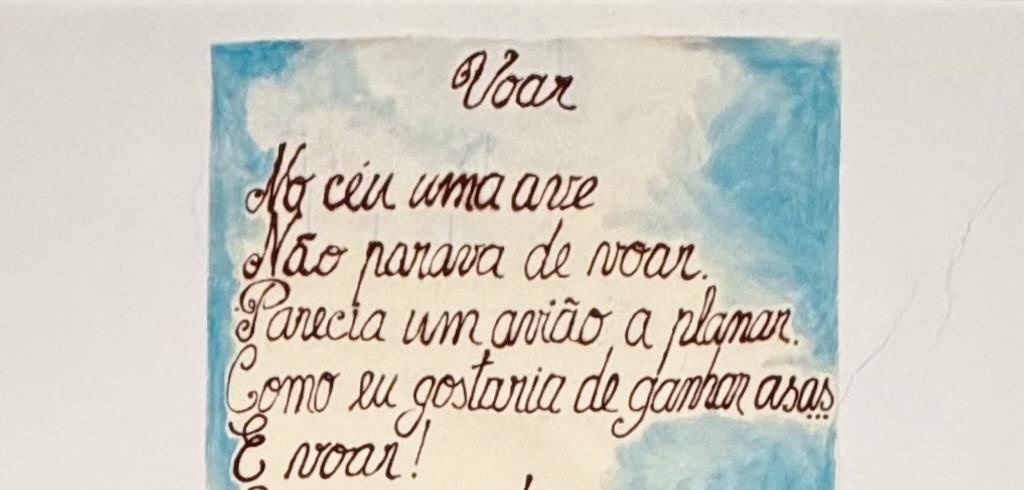 Voar
No céu uma ave
Não parava de voar.
Parecia um avião a planar.
Como eu gostaria de ganhar asas
E voar!